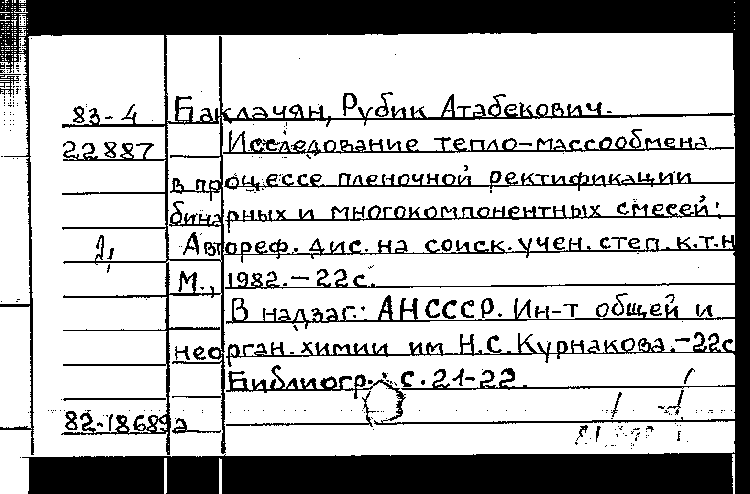 83-4 Баклачян, Рубик Атабекович.
22887 Исследование тепло-массообмена
в процессе пленочной ректификации
бинарных и многокомпонентных смесей:
Автореф. дис. на соиск. учен. степ. к.т.н
М., 1982. – 22с.
В надзаг.: АНСССР. Ин-т общей и
неорган. химии им Н.С. Курнакова. – 22с
Библиогр.: с. 21-22.
82-18689а